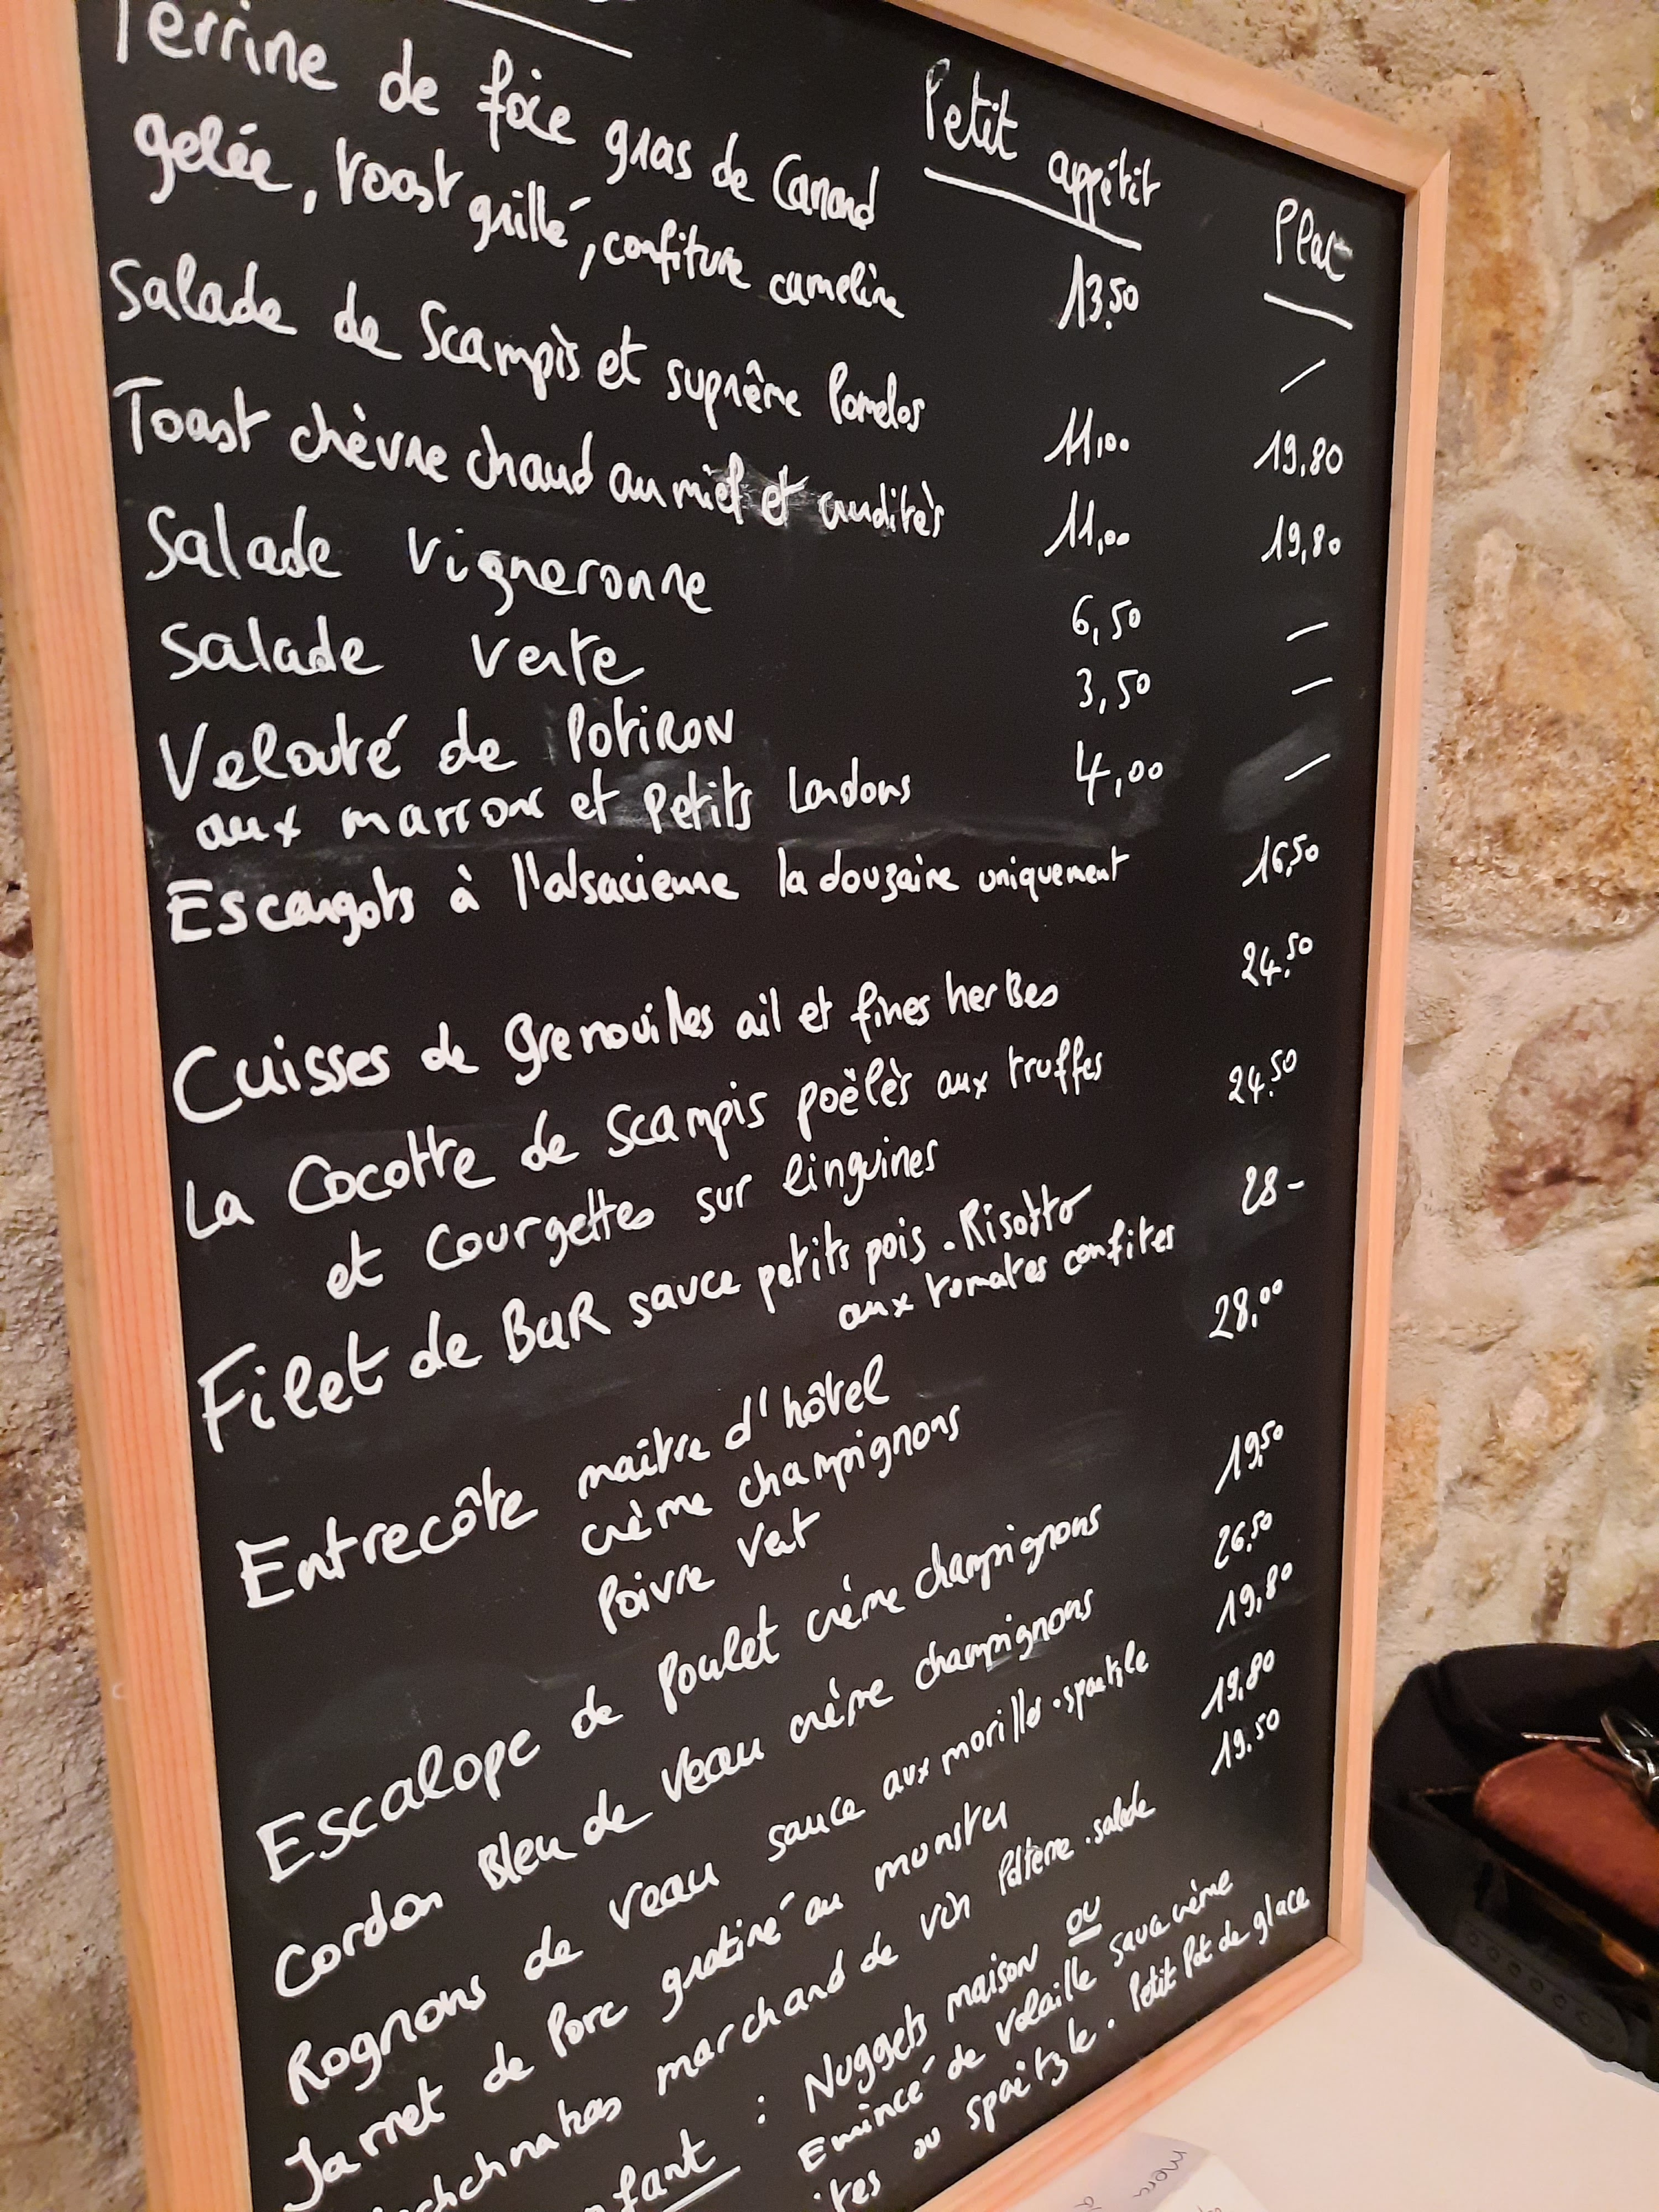 Terrine de foie gras de Canard
Petit appétit
Plat
gelée, toast grillé, confiture cameline 13.50 /
Salade de Scampis et suprême Pomelos 11,00 19,80
Toast chèvre chaud au miel et crudités 11,00 19,80
Salade Vigneronne 6,50 -
Salade verte 3,50 -
Velouté de Potiron
aux marrons et petits Lardons 4,00 -
Escargots à l'alsacienne la douzaine uniquement 16,50
Cuisses de grenouilles ail et fines herbes 24.50
La Cocotte de Scampis poëlès aux truffes
et Courgettes sur linguines 24.50
Filet de BaR sauce petits pois . Risotto 28-
aux tomates confites
Entrecôte maître d'hôtel 28,00
crème champignons
Poivre Vert
Escalope de Poulet crème champignons 19,50
Cordon Bleu de Veau crème champignons 26,50
Rognons de Veau sauce aux morilles . spaetzle 19,80
Jarret de Porc gratiné au munster 19,80
marchand de vin Pdterre . salade 19.50
: Nuggets maison ou
Emincé de volaille sauce crème
ou spaetzle . Petit Pot de glace